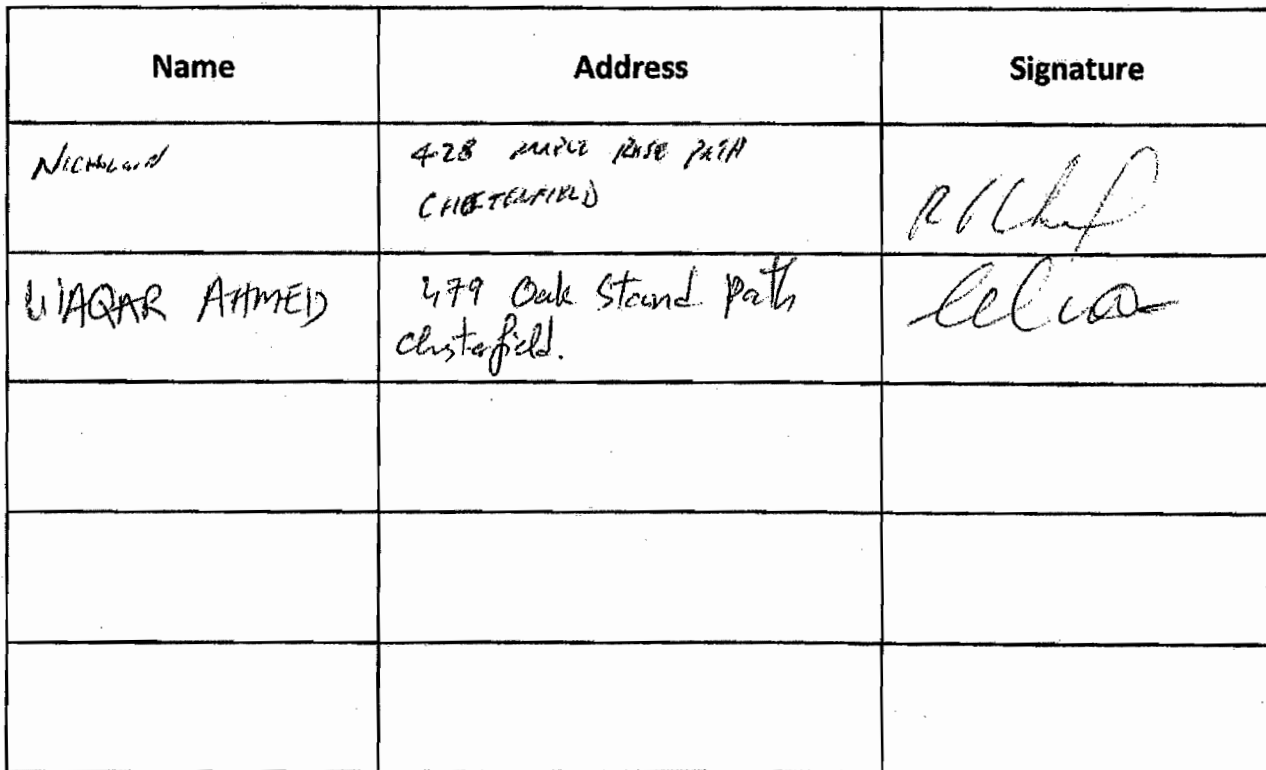 Name Address Signature
428 MAPLE RISE PATH
CHESTERFIELD
WAQAR AHMED 479 Oak Stand Path
Chesterfield.